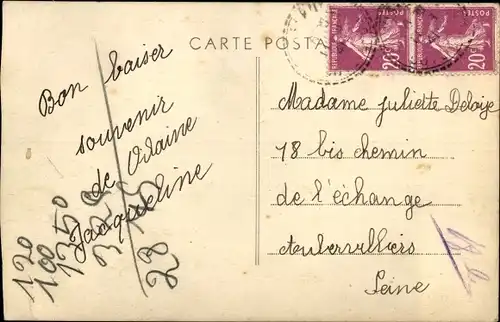 CARTE POSTA
POSTES
20c
POSTES
20c
Bon baiser
souvenir
de Vilaine
Jacqueline
120
100
1350
28
Madame Juliette Deloije
18 bis chemin
de l'échange
Aubervilliers
Seine